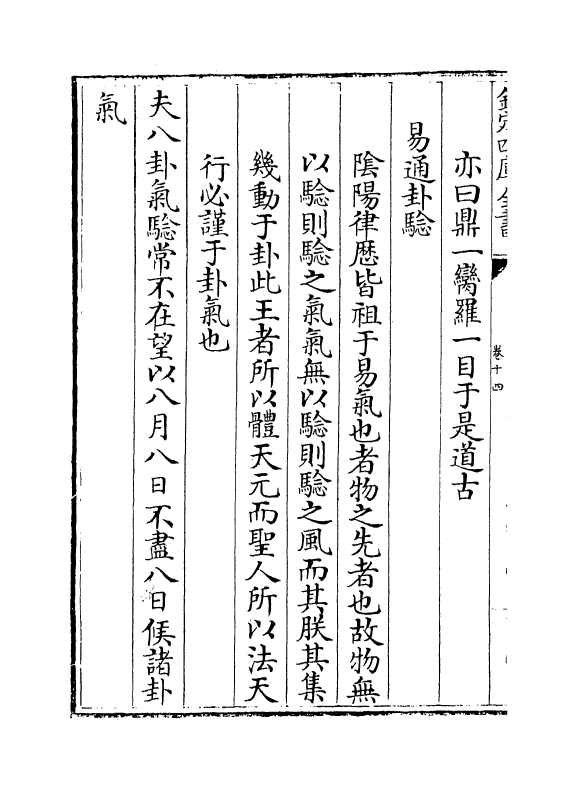 欽定四庫全書
卷十四
亦曰鼎一臠羅一目于是道古
易通卦驗
陰陽律歴皆祖于易氣也者物之先者也故物無
以驗則驗之氣氣無以驗則驗之風而其朕其集
幾動于卦此王者所以體天元而聖人所以法天
行必謹于卦氣也
夫八卦氣驗常不在望以八月八日不盡八日候諸卦
氣